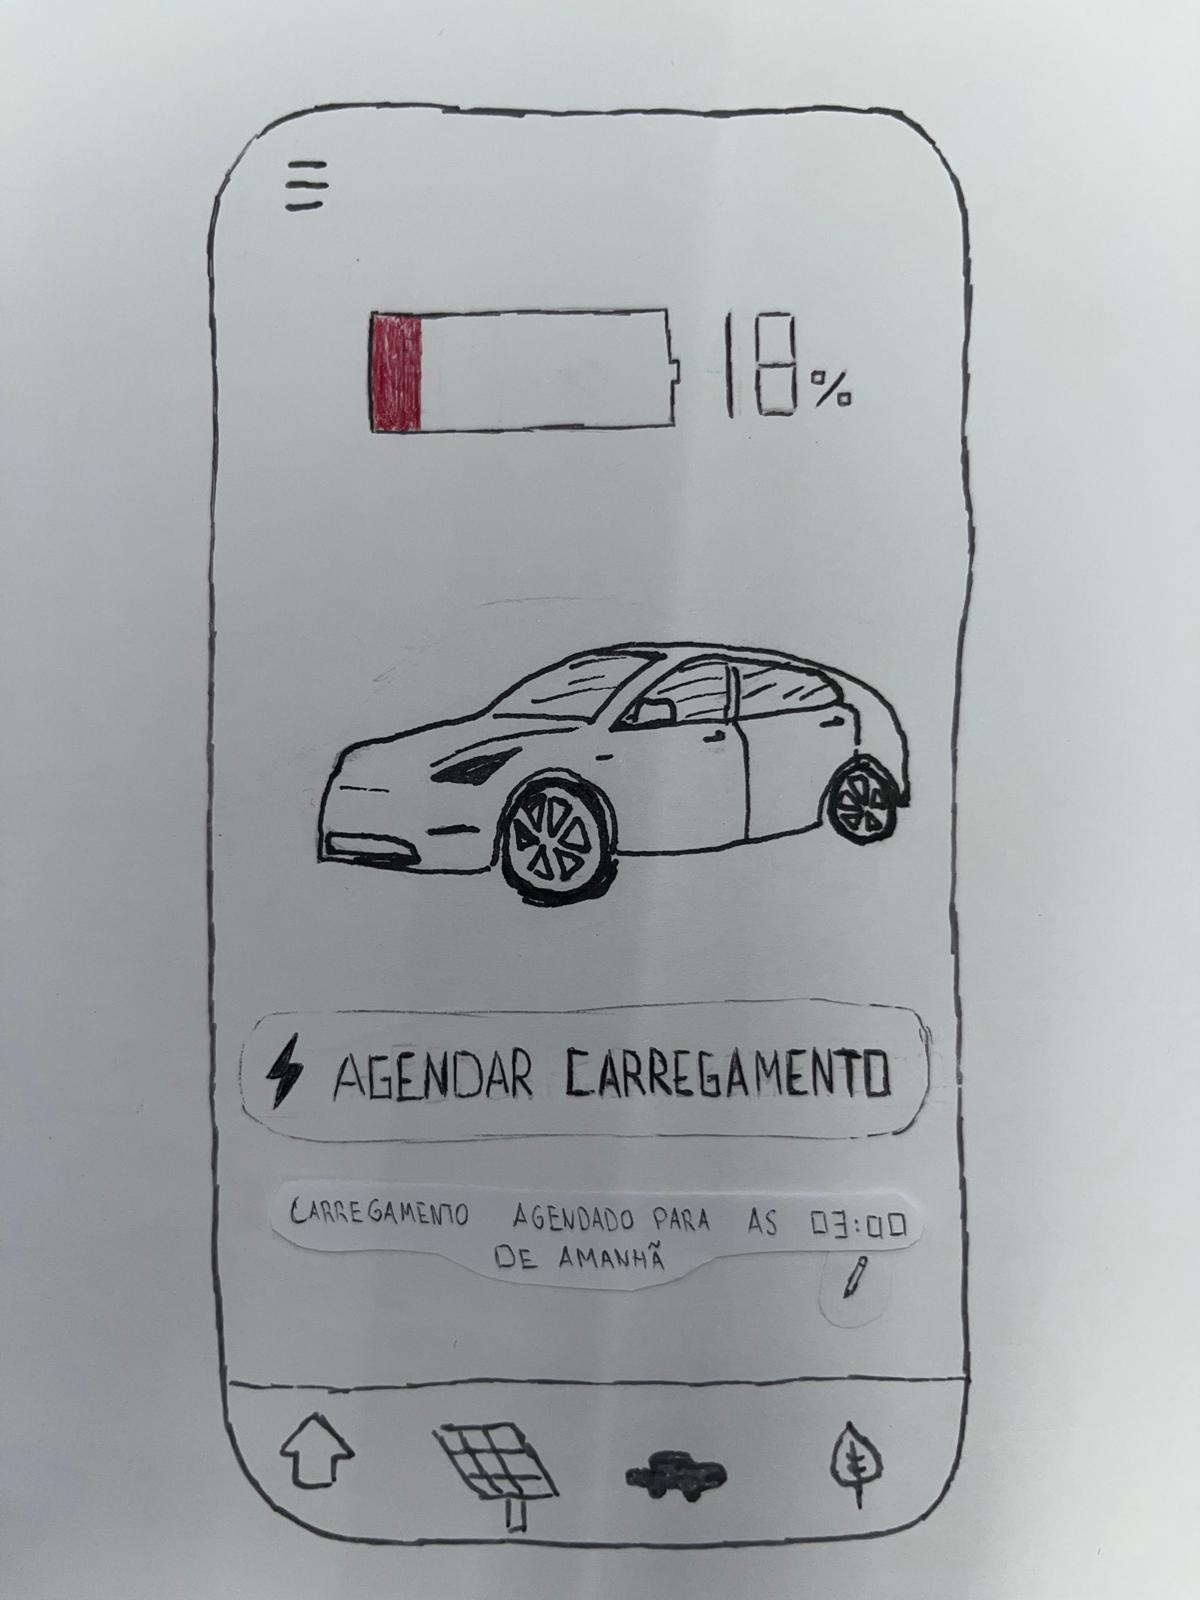 18%
AGENDAR CARREGAMENTO
CARREGAMENTO AGENDADO PARA AS 03:00
DE AMANHÃ